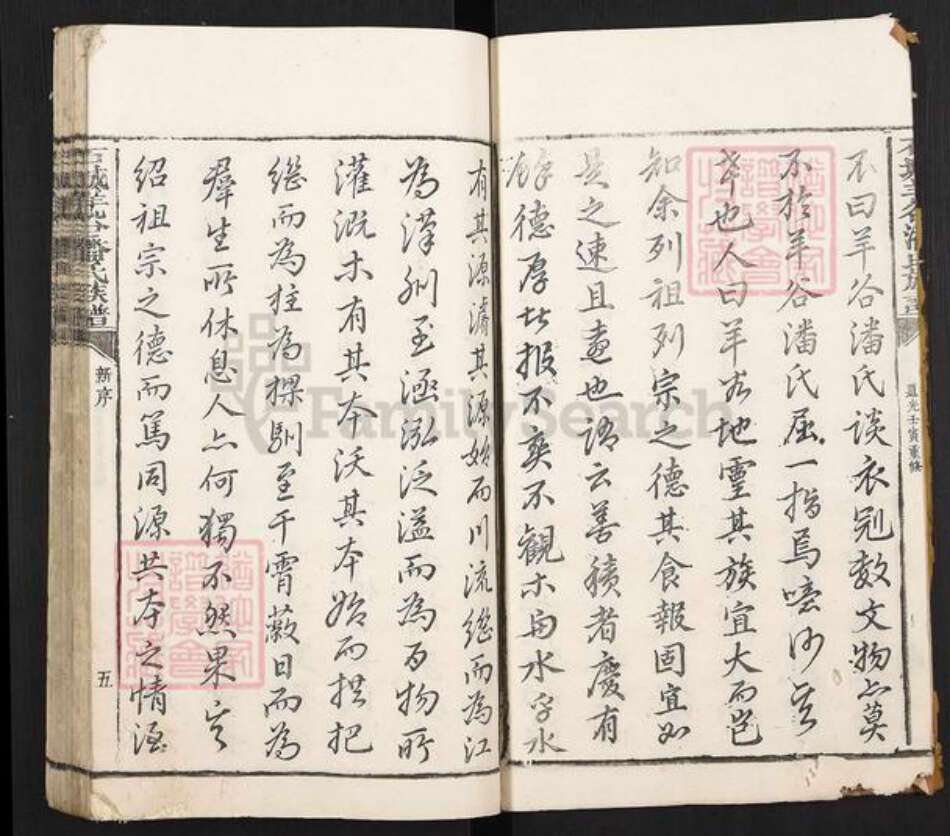 不曰羊谷潘氏談衣冠數文物亦莫
不於羊谷潘氏屈一指焉噫何其
盛也人曰羊谷地靈其族宜大而豈
知余列祖列宗之德其食報固宜如
是之速且遠也語云善積者慶有
餘德厚者報不爽不觀木与水乎水
有其源濬其源始而川流繼而為江
為漢洲至涵泓泛溢而為万物所
灌溉木有其本沃其本始而拱把
繼而為柱為樑馴至干霄蔽日而為
羣生所休息人亦何獨不然果其
紹祖宗之德而篤同源共本之情
石城羊谷潘氏族譜
道光壬寅重修
石城羊谷潘氏族譜
新序
五
Family Search